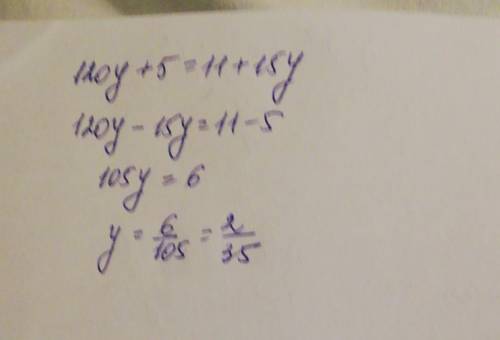 120y + 5 = 11 + 15y
120y - 15y = 11 - 5
105y = 6
y = 6/105 = 2/35